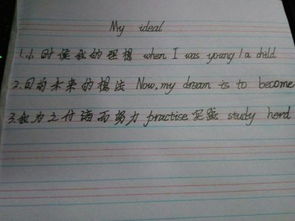 My ideal
1.小时候我的理想 when I was young / a child
2.目前未来的想法 Now, my dream is to become
3.我为之付诸而努力 practise 实践 study hard